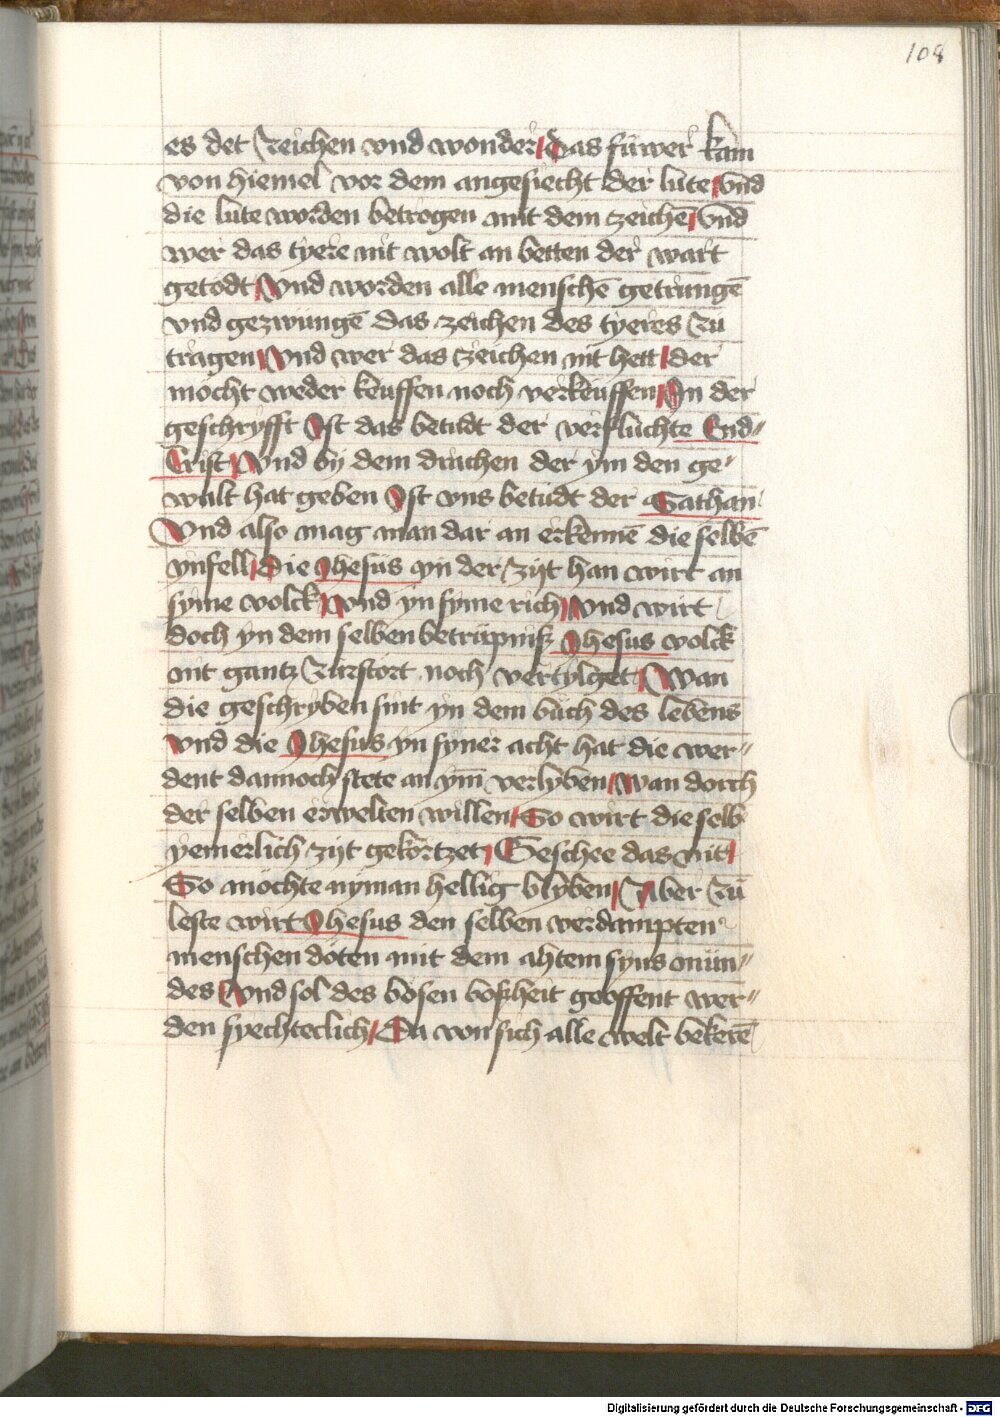 108
es det zeichen vnd wonder das fúwer kam
von hiemel vor dem angesiecht der lute vnd
die lute worden betrogen mit dem zeichē vnd
wer das tyere nit wolt an betten der wart
getodt vnd worden alle menschē getrungē
vnd gezwungē das zeichen des tyeres zu
tragen vnd wer das zeichen nit hett der
mocht weder keuffen noch verkeuffen In der
geschryfft Ist das betudt der verfluchte End"
Crist Vnd by dem drachen der ym den ge"
walt hat geben Ist vns betudt der Sathan
Vnd also mag man dar an erkennē die selbē
ynfell Die Jhesus yn der zyt han wirt an
syme volck vnd yn syme rich vnd wirt
doch yn dem selben betrupniß Jhesus volck
nit gantz zurstort noch vertylget Wan
die geschryben sint yn dem buch des lebens
vnd die Jhesus yn syner acht hat die wer"
dent dannoch stete an ym̄ verlyben wan dorch
der selben erwelten willen So wirt die selb
yemerlich zyt gekortzet Geschee das nit
So mochte nyman hellig blyben Aber zu
leste wirt Jhesus den selben verdampten
menschen doten mit dem ahtem syns mún"
des vnd sol des bosen boßheit geoffent wer"
den syechteclich Da von sich alle welt bekerē
Digitalisierung gefördert durch die Deutsche Forschungsgemeinschaft - DFG